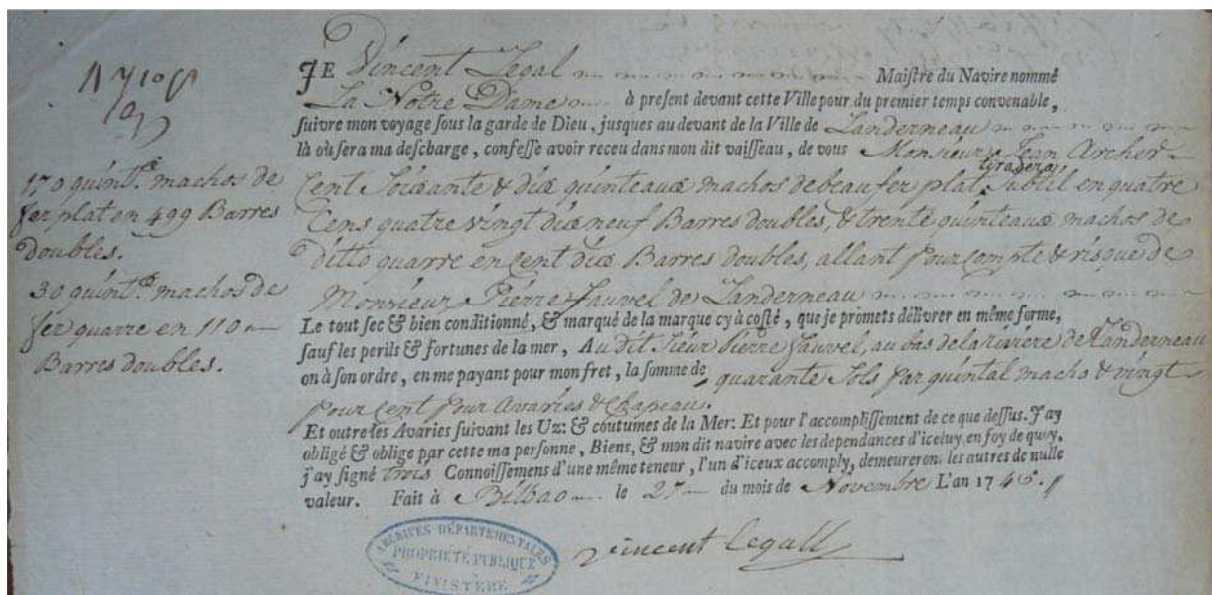 170 quint.ˣ machos de
fer plat en 499 Barres
doubles.
30 quint.ˣ machos de
fer quarre en 110
Barres doubles.
JE Vincent Legal Maiſtre du Navire nommé
La Notre Dame à preſent devant cette Ville pour du premier temps convenable,
ſuivre mon voyage ſous la garde de Dieu, juſques au devant de la Ville de Landerneau
là où ſera ma deſcharge, confeſſe avoir receu dans mon dit vaiſſeau, de vous Monsieur Jean Archer
Cent Soixante & dix quinteaux machos de beau fer plat Subtil en quatre
Cens quatre vingt dix neuf Barres doubles, & trente quinteaux machos de
ditto quarre en Cent dix Barres doubles, allant pour Compte & risque de
Monsieur Pierre Fauvel de Landerneau
Le tout ſec & bien conditionné, & marqué de la marque cy à coſté, que je promets délivrer en même forme,
ſauf les perils & fortunes de la mer, Au dit Sieur Pierre Fauvel, au bas de la riviere de Landerneau
on à ſon ordre, en me payant pour mon fret, la ſomme de quarante Sols par quintal macho & vingt
pour Cent pour Avaries & Chapeau.
Et outre les Avaries ſuivant les Uz: & coutumes de la Mer: Et pour l'accompliſſement de ce que deſſus. J'ay
obligé & oblige par cette ma perſonne, Biens, & mon dit navire avec les dependances d'iceluy, en foy de quoy,
j'ay ſigné trois Connoiſſemens d'une même teneur, l'un d'iceux accomply, demeureront les autres de nulle
valeur. Fait à Bilbao le 27 du mois de Novembre L'an 1746.
Vincent Legall
ARCHIVES DÉPARTEMENTALES
PROPRIÉTÉ PUBLIQUE
FINISTÈRE